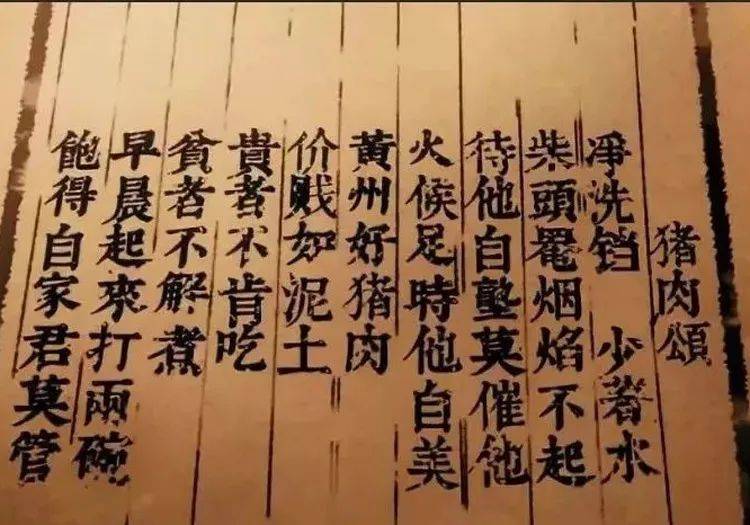 猪肉頌
凈洗铛 少著水
柴頭罨烟焰不起
待他自塾莫催他
火候足時他自美
黃州好猪肉
价贱如泥土
貴者不肯吃
貧者不解煮
早晨起來打兩碗
飽得自家君莫管